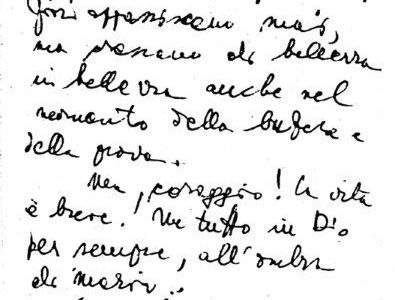 fiori appassiscono mai,
ma passano di bellezza
in bellezza anche nel
momento della bufera e
della prova.
Ma, coraggio! la vita
è breve! Ma tutto in Dio
per sempre, all'ombra
di Maria..